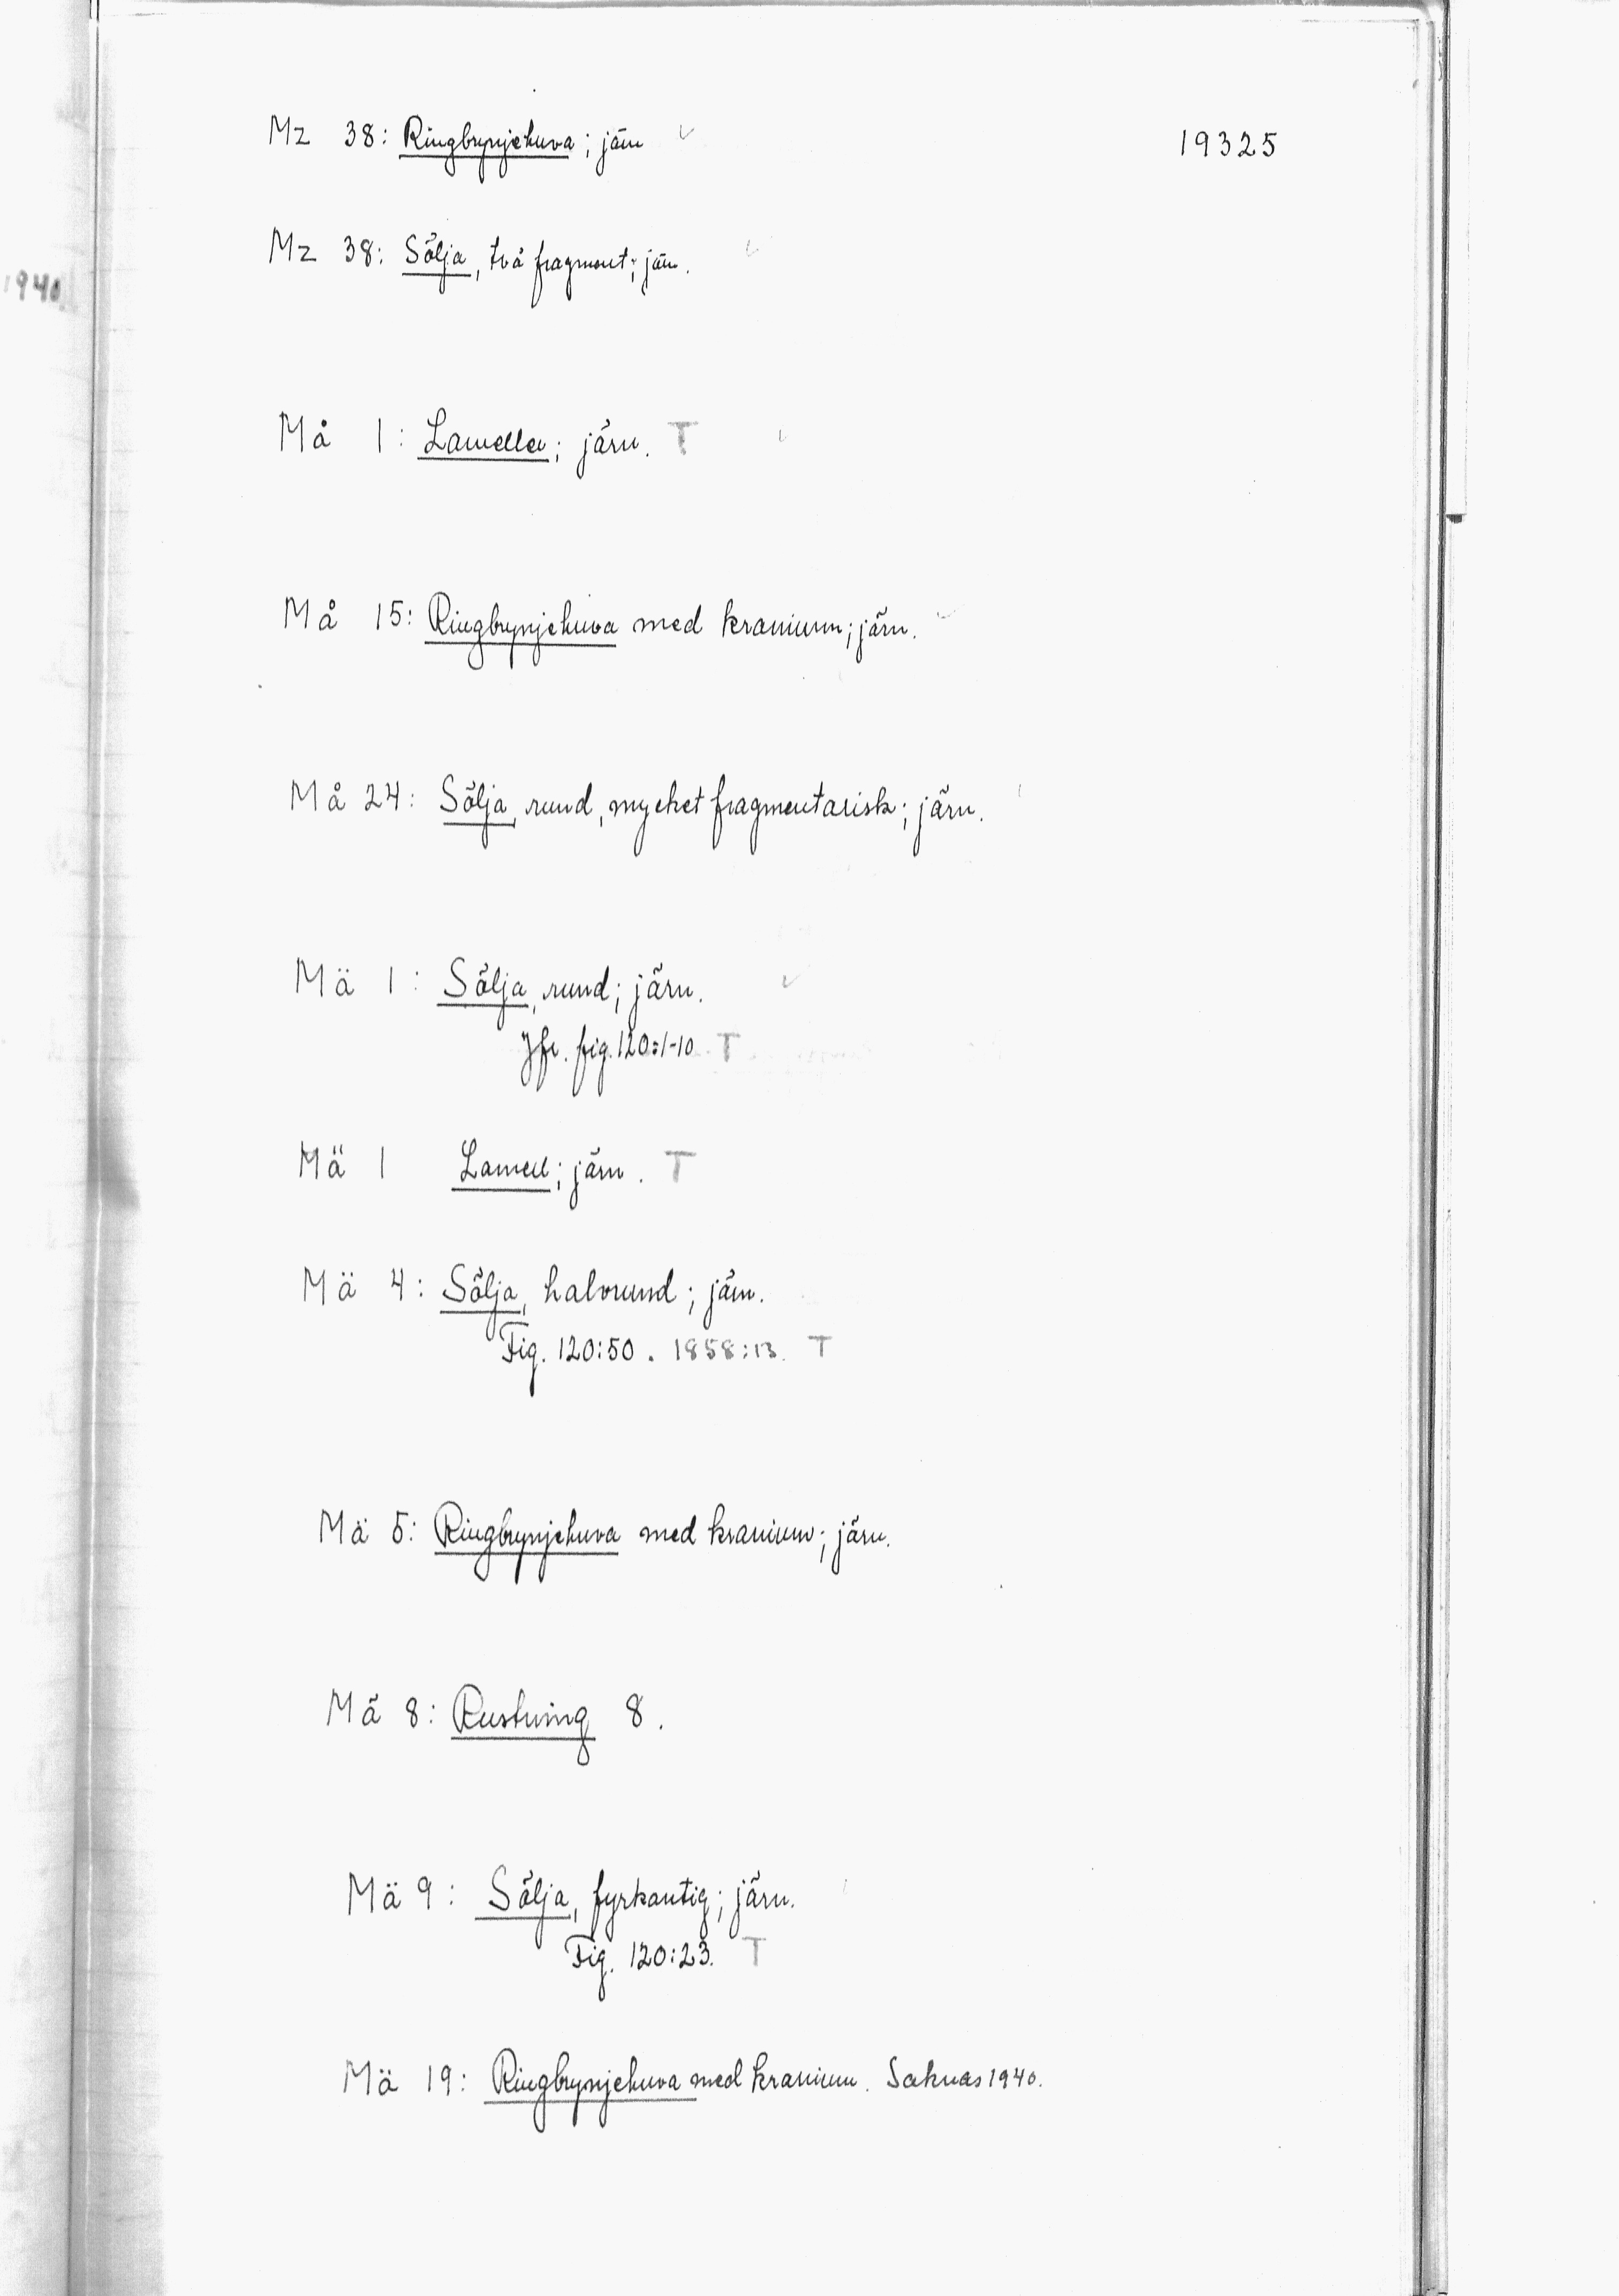 19325
Mz 38: Ringbrynjehuva; järn ✓
Mz 38: Sölja, två fragment; järn. ✓
1940.
Må 1: Lameller; järn. T ✓
Må 15: Ringbrynjehuva med kranium; järn. ✓
Må 24: Sölja, rund, mycket fragmentarisk; järn.
Mä 1: Sölja, rund; järn. ✓
Jfr. fig. 120:1-10 T
Mä 1 Lamell; järn. T
Mä 4: Sölja, halvrund; järn.
Fig. 120:50. 1858:13. T
Mä 5: Ringbrynjehuva med kranium; järn.
Mä 8: Rustning 8.
Mä 9: Sölja, fyrkantig; järn.
Fig. 120:23. T
Mä 19: Ringbrynjehuva med kranium. Saknas 1940.